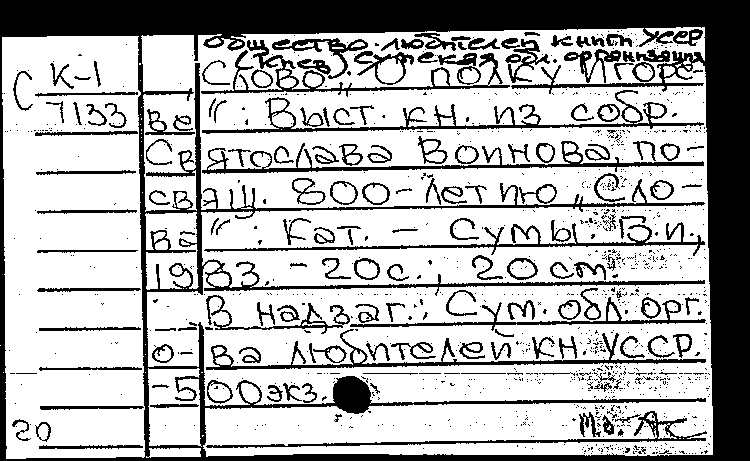 Общество любителей книги УССР
(Киев). Сумская обл. организация
С К-1 Слово „О полку Игоре-
7133 ве“: Выст. кн. из собр.
Святослава Воинова, по-
свящ. 800-летию „Сло-
ва“: Кат. – Сумы: Б.и.,
1983. - 20с.; 20 ст.
В надзаг.: Сум. обл. орг.
о-ва любителей кн. УССР.
-500экз.
20